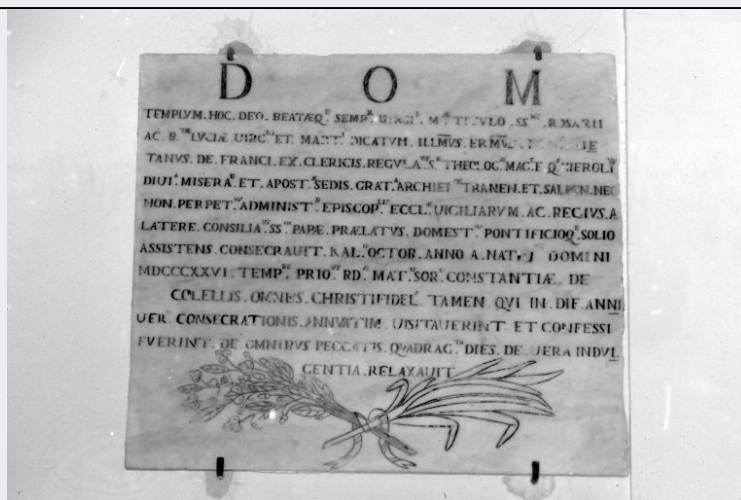 D O M
TEMPLVM. HOC. DEO. BEATÆQ^E SEMP^R TITVLO. SS^MI .ROSARII
AC. B.^TÆ LVCIÆ UIRG^S ET. MART^S DICATVM. ILLMVS. ERMVS.
TANVS. DE. FRANCI. EX. CLERICIS. REGVLA
DIUI^A MISERA^E ET. APOST^Æ SEDIS. GRAT^A ARCHIEP TRANEN. ET. SALPEN. NEC
NON. PERPET^S ADMINIST^R EPISCOP^LIS ECCL^Æ UIGILIARVM. AC. REGIVS. A
LATERE. CONSILIA^S SS^MI PAPÆ. PRÆLATVS. DOMEST^S PONTIFICIOQ^E SOLIO
ASSISTENS. CONSECRAUIT. KAL^IS OCTOB^R. ANNO A. NAT. DOMINI
MDCCCXXVI. TEMP^RE PRIO^TVS RD^Æ MAT^S SOR^S CONSTANTIÆ. DE
COLELLIS. OMNES. CHRISTIFIDEL^S TAMEN QVI IN DIE ANNI
UER CONSECRATIONIS. ANNVATIM. UISITAUERINT. ET CONFESSI
FVERINT. DE OMNIBVS PECCATIS. QUADRAG^TA DIES. DE UERA INDVL
GENTIA. RELAXAUIT